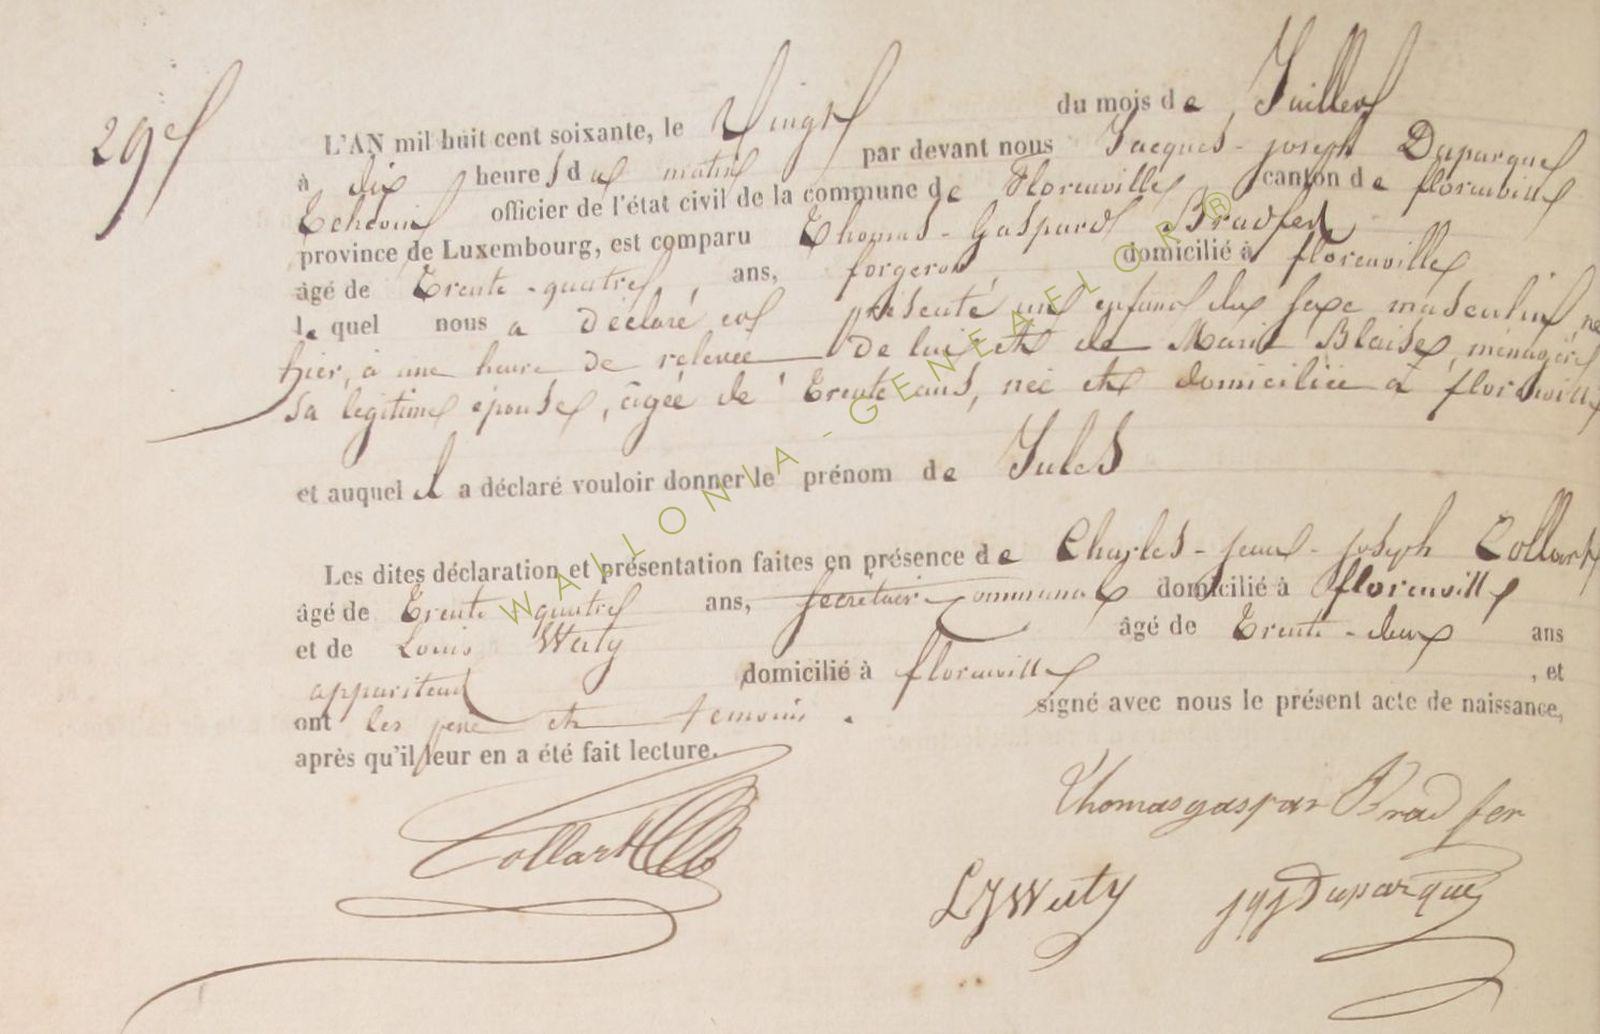 29e
L'AN mil huit cent soixante, le Vingt du mois de Juillet
à dix heures du matin par devant nous Jacques-joseph Duparque
Echevin officier de l'état civil de la commune de Florenville canton de florenville
province de Luxembourg, est comparu Thomas-Gaspard Bradfer
âgé de Trente-quatre ans, forgeron domicilié à florenville
lequel nous a déclaré et présenté un enfant du sexe masculin, né
hier, à une heure de relevée de lui et de Marie Blaise, ménagère
sa légitime épouse, âgée de Trente ans, née et domiciliée à florenville
et auquel il a déclaré vouloir donner le prénom de Jules
Les dites déclaration et présentation faites en présence de Charles-jean-joseph Collart
âgé de Trente quatre ans, secrétaire communal domicilié à florenville
et de Louis Wuty âgé de Trente-deux ans
appariteur domicilié à florenville, et
ont les père et témoins. signé avec nous le présent acte de naissance,
après qu'il leur en a été fait lecture.
Thomasgaspar Bradfer
Collart
LJWuty
jqjDuparque
WALLONIA-GENEALOR ®